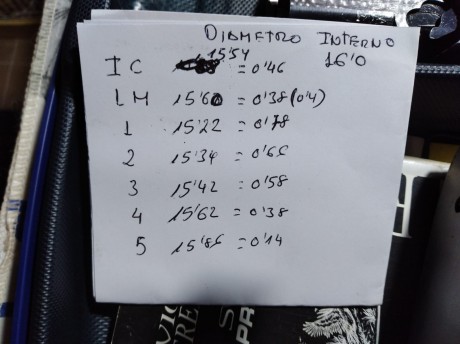 DIAMETRO INTERNO
16'0
IC 15'54 = 0'46
LM 15'60 = 0'38 (0'4)
1 15'22 = 0'78
2 15'34 = 0'66
3 15'42 = 0'58
4 15'62 = 0'38
5 15'86 = 0'14